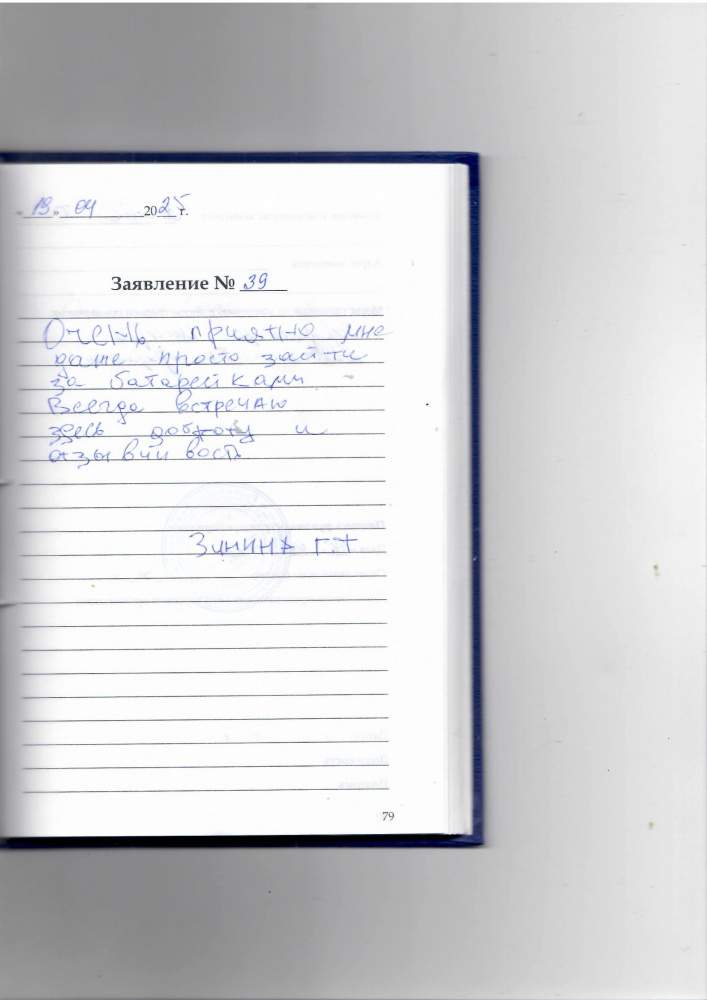 « 19 » 04 2025 г.
Заявление № 39
Очень приятно мне
даже просто зайти
за батарейками
Всегда встречаю
здесь доброту и
отзывчивость
Зинина Г.А
79